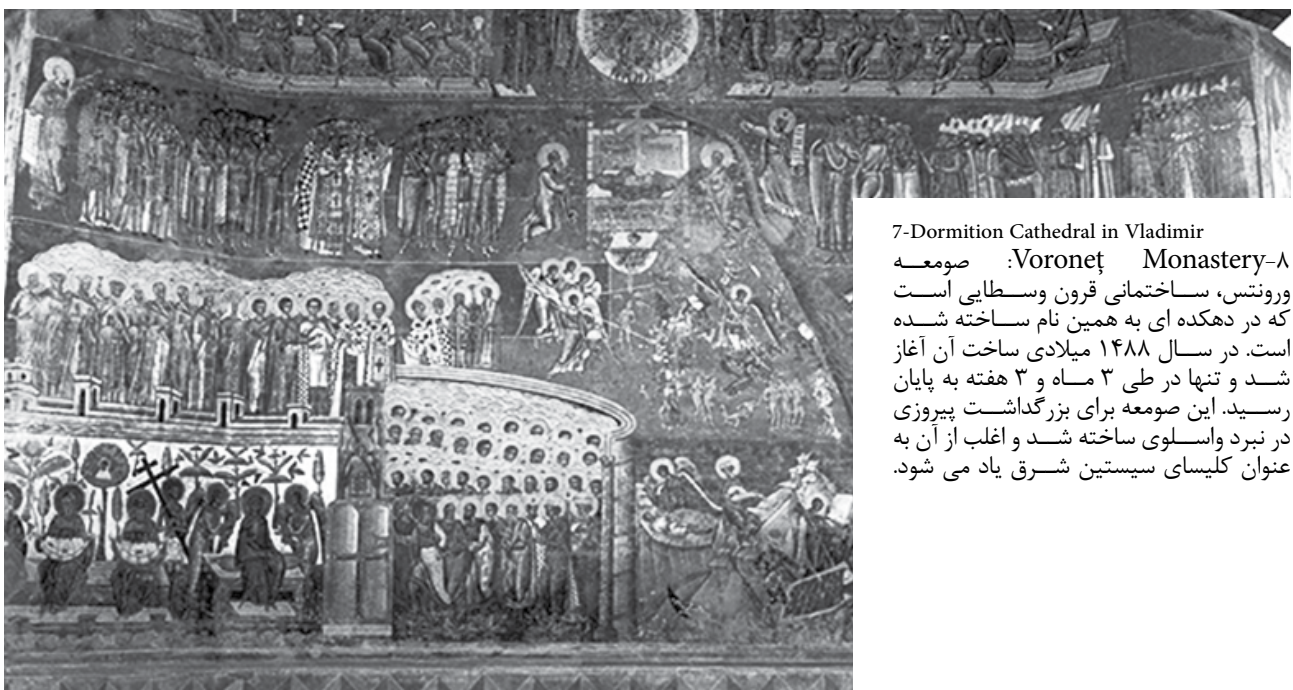 7-Dormition Cathedral in Vladimir
۸-Voroneţ Monastery: صومعه
ورونتس، ساختمانی قرون وسطایی است
که در دهکده ای به همین نام ساخته شده
است. در سال ۱۴۸۸ میلادی ساخت آن آغاز
شد و تنها در طی ۳ ماه و ۳ هفته به پایان
رسید. این صومعه برای بزرگداشت پیروزی
در نبرد واسلوی ساخته شد و اغلب از آن به
عنوان کلیسای سیستین شرق یاد می شود.